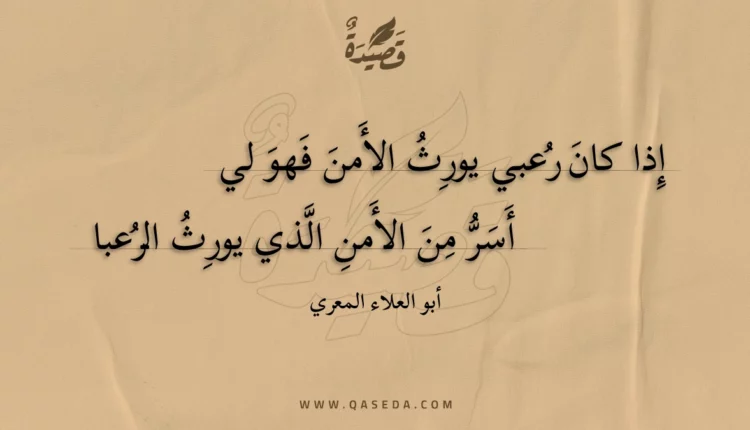 قَصِيدَةٌ
إِذا كانَ رُعبي يورِثُ الأَمنَ فَهوَ لي
أَسَرُّ مِنَ الأَمنِ الَّذي يورِثُ الرُعبا
أبو العلاء المعري
WWW.QASEDA.COM